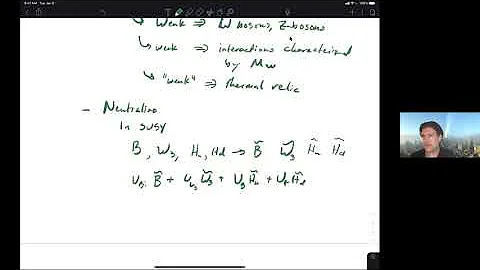 ↳ Weak ⇒ W bosons, Z-bosons
↳ weak ⇒ interactions characterized
by Mw
↳ "weak" ⇒ thermal relic
- Neutralino
In SUSY
B, W₃, Hu, Hd → B̃ W̃₃ H̃u H̃d
B̃ + W̃₃ + H̃u + H̃d